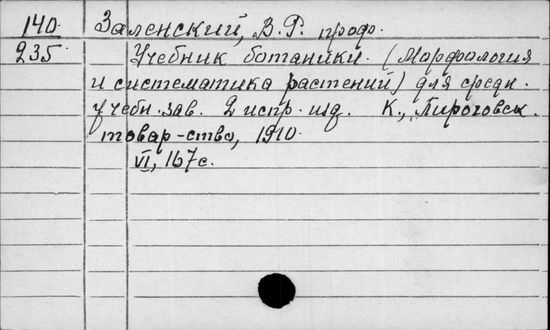 140 Заленский, В. Р. проф.
235 Учебник ботаники. (Морфология
и систематика растений) для средн.
учебн. зав. 2 испр. изд. К., Пироговск.
товар-ство, 1910.
VI, 167 с.